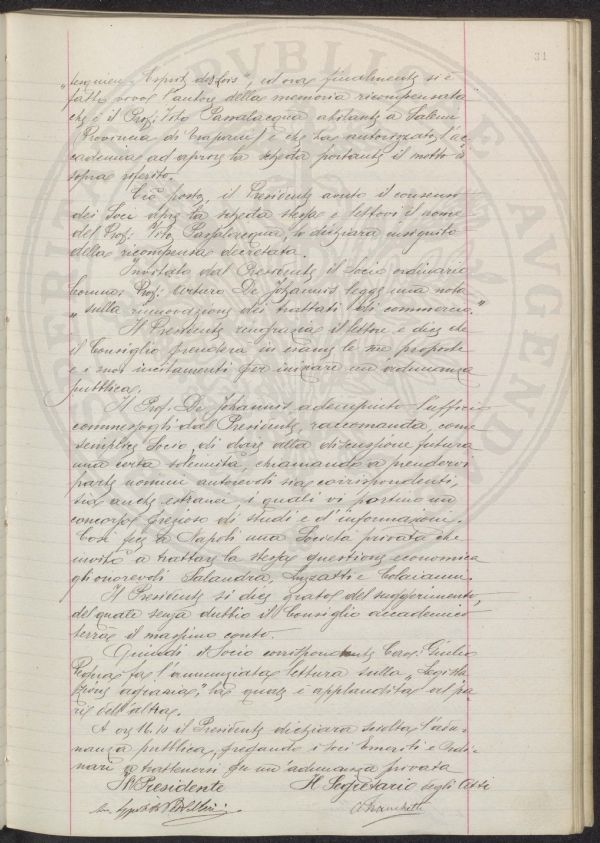 31
"tesquieu Esprit des lois", ed ora finalmente si è
fatto vivo l'autore della memoria ricompensata
che è il Prof. Vito Passalacqua abitante a Salemi
(Provincia di Trapani) che ha autorizzato l'ac-
cademia ad aprire la scheda portante il motto di
sopra riferito.
Ciò posto, il Presidente avuto il consenso
dei Soci apre la scheda stessa e lettovi il nome
del Prof. Vito Passalacqua, lo dichiara insignito
della ricompensa decretata.
Invitato dal Presidente il Socio ordinario
Comm. Prof. Arturo De Johannis legge una nota
"sulla rinnovazione dei trattati di commercio."
Il Presidente ringrazia il lettore e dice che
il Consiglio prenderà in esame le sue proposte
e i suoi incitamenti per iniziare un'adunanza
pubblica.
Il Prof. De Johannis adempiuto l'ufficio
commessogli dal Presidente, raccomanda, come
semplice Socio di dare alla discussione futura
una certa solennità, chiamando a prendervi
parte uomini autorevoli sia corrispondenti,
sia anche estranei i quali vi portino un
concorso prezioso di studi e d'informazioni.
Così fece a Napoli una Società privata che
invitò a trattare la stessa questione economica
gli onorevoli Salandra, Luzzatti e Colajanni.
Il Presidente si dice grato del suggerimento,
del quale senza dubbio il Consiglio accademico
terrà il massimo conto.
Quindi il Socio corrispondente Cav. Giulio
fa l'annunziata lettura sulla "Legisla-
zione agraria," la quale è applaudita al pa-
ri dell'altra.
A ore 16.10 il Presidente dichiara sciolta l'adu-
nanza pubblica, pregando i Soci Emeriti e Ordi-
nari a trattenersi per un'adunanza privata
Il Presidente Il Segretario degli Atti